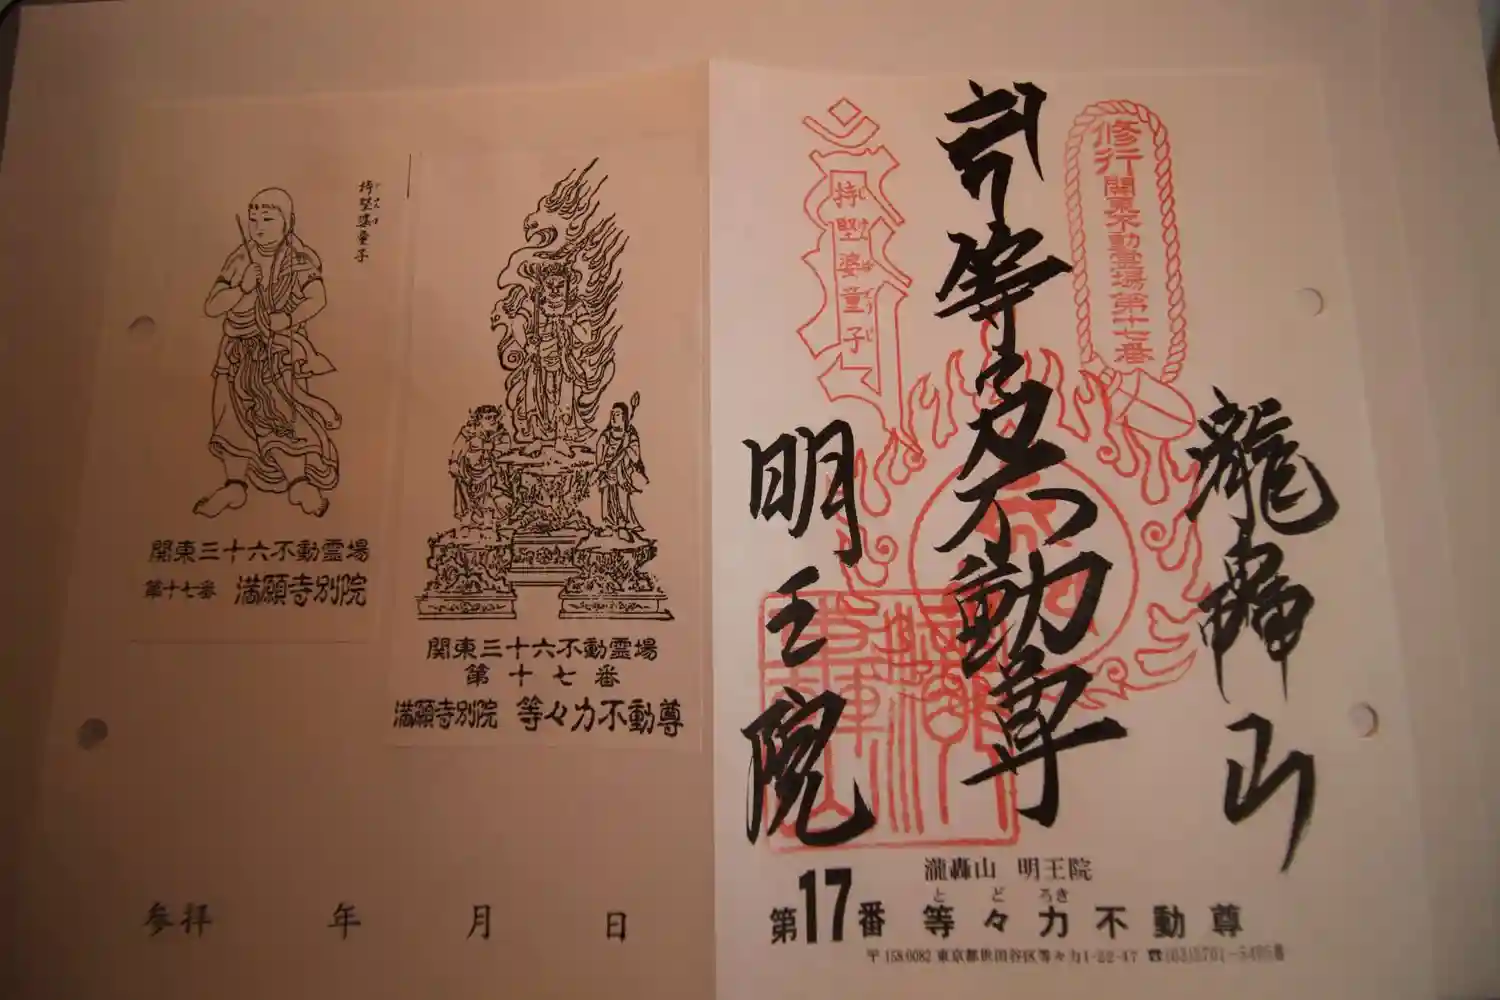 持堅婆童子
関東三十六不動霊場
第十七番 満願寺別院
関東三十六不動霊場
第十七番
満願寺別院 等々力不動尊
参拝 年 月 日
修行関東不動霊場第十七番
瀧轟山
等々力不動尊
明王院
持堅婆童子
じけんばどうじ
瀧轟山 明王院
とどろき
第17番 等々力不動尊
〒158-0082 東京都世田谷区等々力1-22-47 ☎(03)5701-5405番